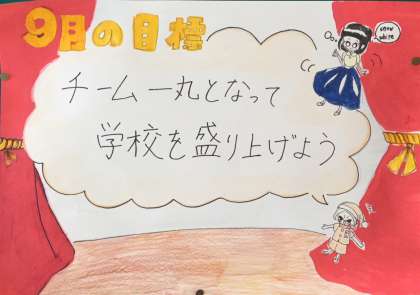 9月の目標
snow
white
チーム一丸となって
学校を盛り上げよう